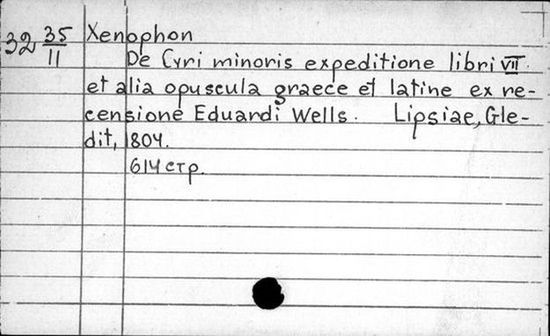 32 35/11 Xenophon
De Cyri minoris expeditione libri VII.
et alia opuscula graece et latine ex re-
censione Eduardi Wells. Lipsiae, Gle-
dit, 1804.
614 стр.